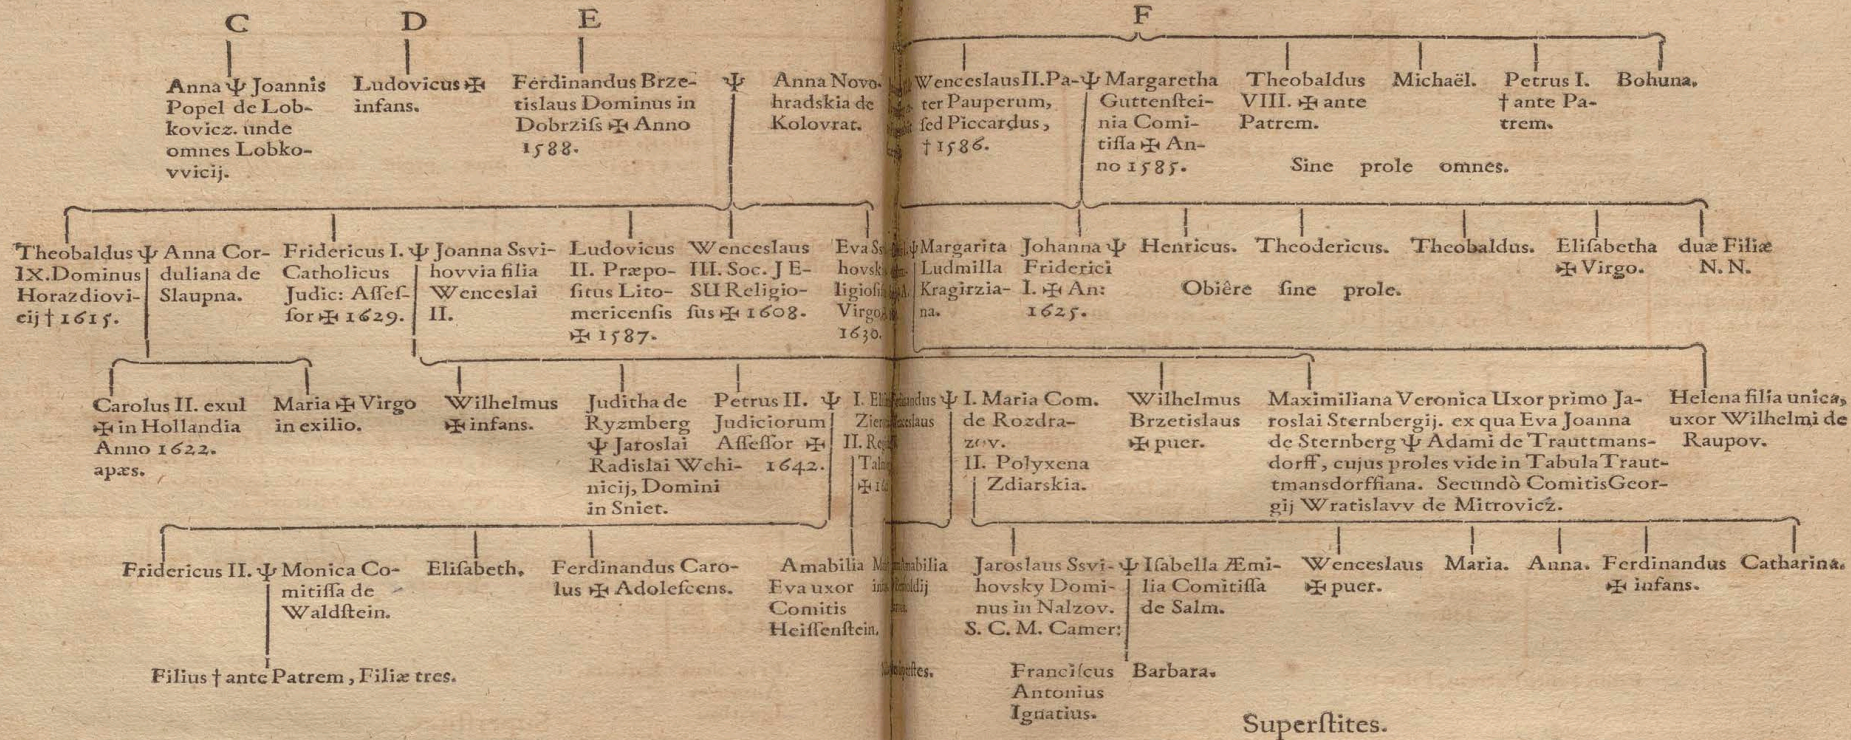 C
D
E
F
Anna Ψ Joannis
Popel de Lob-
kovicz. unde
omnes Lobko-
vvicij.
Ludovicus ✠
infans.
Ferdinandus Brze-
tislaus Dominus in
Dobrziſs ✠ Anno
1588.
Ψ
Anna Novo-
hradskia de
Kolovrat.
Wenceslaus II. Pa-
ter Pauperum,
ſed Piccardus,
† 1586.
Ψ Margaretha
Guttenſtei-
nia Comi-
tiſſa ✠ An-
no 1585.
Theobaldus
VIII. ✠ ante
Patrem.
Michaël.
Petrus I.
† ante Pa-
trem.
Bohuna.
Sine prole omnes.
Theobaldus
IX. Dominus
Horazdiovi-
cij † 1615.
Ψ Anna Cor-
duliana de
Slaupna.
Fridericus I.
Catholicus
Judic: Aſſeſ-
ſor ✠ 1629.
Ψ Joanna Ssvi-
hovvia filia
Wenceslai
II.
Ludovicus
II. Præpo-
ſitus Lito-
mericenſis
✠ 1587.
Wenceslaus
III. Soc. JE-
SU Religio-
ſus ✠ 1608.
Eva
Virgo
1630.
Ψ Margarita
Ludmilla
Kragirzia-
na.
Johanna Ψ
Friderici
I. ✠ An:
1625.
Henricus.
Theodericus.
Theobaldus.
Eliſabetha
✠ Virgo.
duæ Filiæ
N. N.
Obiêre ſine prole.
Carolus II. exul
✠ in Hollandia
Anno 1622.
apæs.
Maria ✠ Virgo
in exilio.
Wilhelmus
✠ infans.
Juditha de
Ryzmberg
Ψ Jaroslai
Radislai Wchi-
nicij, Domini
in Sniet.
Petrus II. Ψ
Judiciorum
Aſſeſſor ✠
1642.
I.
II.
✠
Ψ I. Maria Com.
de Rozdra-
zov.
II. Polyxena
Zdiarskia.
Wilhelmus
Brzetislaus
✠ puer.
Maximiliana Veronica Uxor primo Ja-
roslai Sternbergij. ex qua Eva Joanna
de Sternberg Ψ Adami de Trauttmans-
dorff, cujus proles vide in Tabula Traut-
tmansdorffiana. Secundò Comitis Geor-
gij Wratislavv de Mitrovicz.
Helena filia unica,
uxor Wilhelmi de
Raupov.
Fridericus II. Ψ
Monica Co-
mitiſſa de
Waldſtein.
Eliſabeth.
Ferdinandus Caro-
lus ✠ Adoleſcens.
Amabilia
Eva uxor
Comitis
Heiſſenſtein.
Jaroslaus Ssvi-
hovsky Domi-
nus in Nalzov.
S. C. M. Camer:
Ψ Iſabella Æmi-
lia Comitiſſa
de Salm.
Wenceslaus
✠ puer.
Maria.
Anna.
Ferdinandus
✠ infans.
Catharina.
Filius † ante Patrem, Filiæ tres.
Franciſcus
Antonius
Ignatius.
Barbara.
Superſtites.